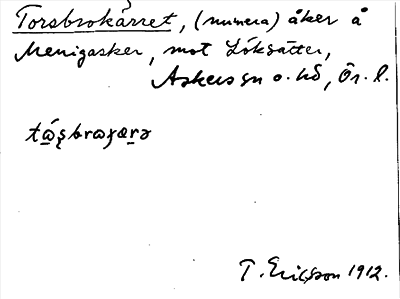 Torsbrokärret, (numera) åker å
Menigasker, mot Löksätter,
Askers sn o. hd, Ör. l.
T. Ericsson 1912.